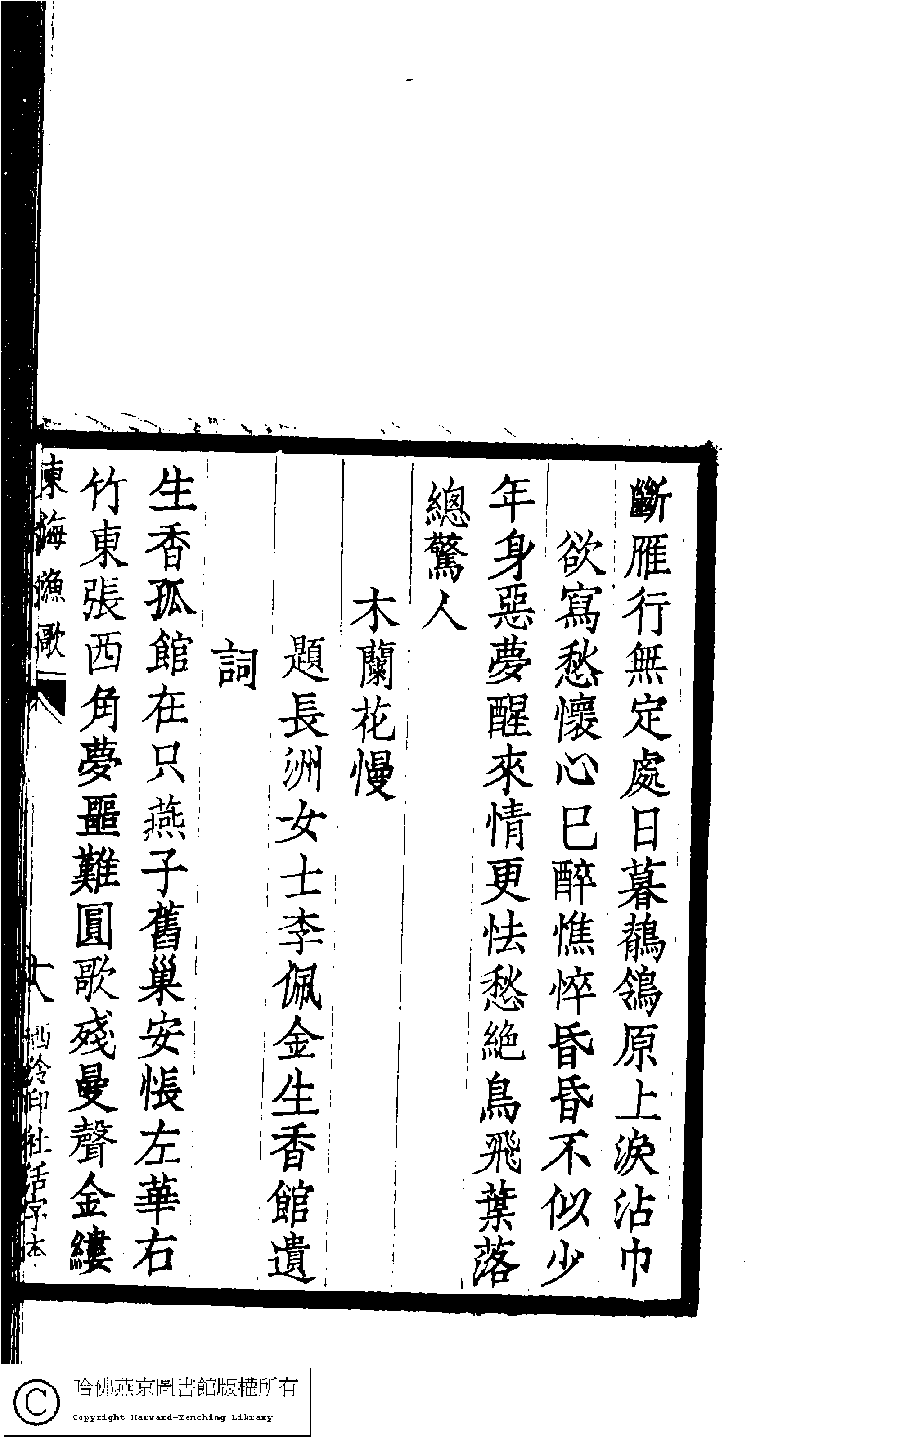 斷雁行無定處日暮鶺鴒原上淚沾巾
欲寫愁懷心已醉憔悴昏昏不似少
年身惡夢醒來情更怯愁絕鳥飛葉落
總驚人
木蘭花慢
題長洲女士李佩金生香館遺
詞
生香孤館在只燕子舊巢安悵左華右
竹東張西角夢噩難圓歌殘曼聲金縷
東海漁歌
西泠印社活字本
哈佛燕京圖書館版權所有
Copyright Harvard-Yenching Library